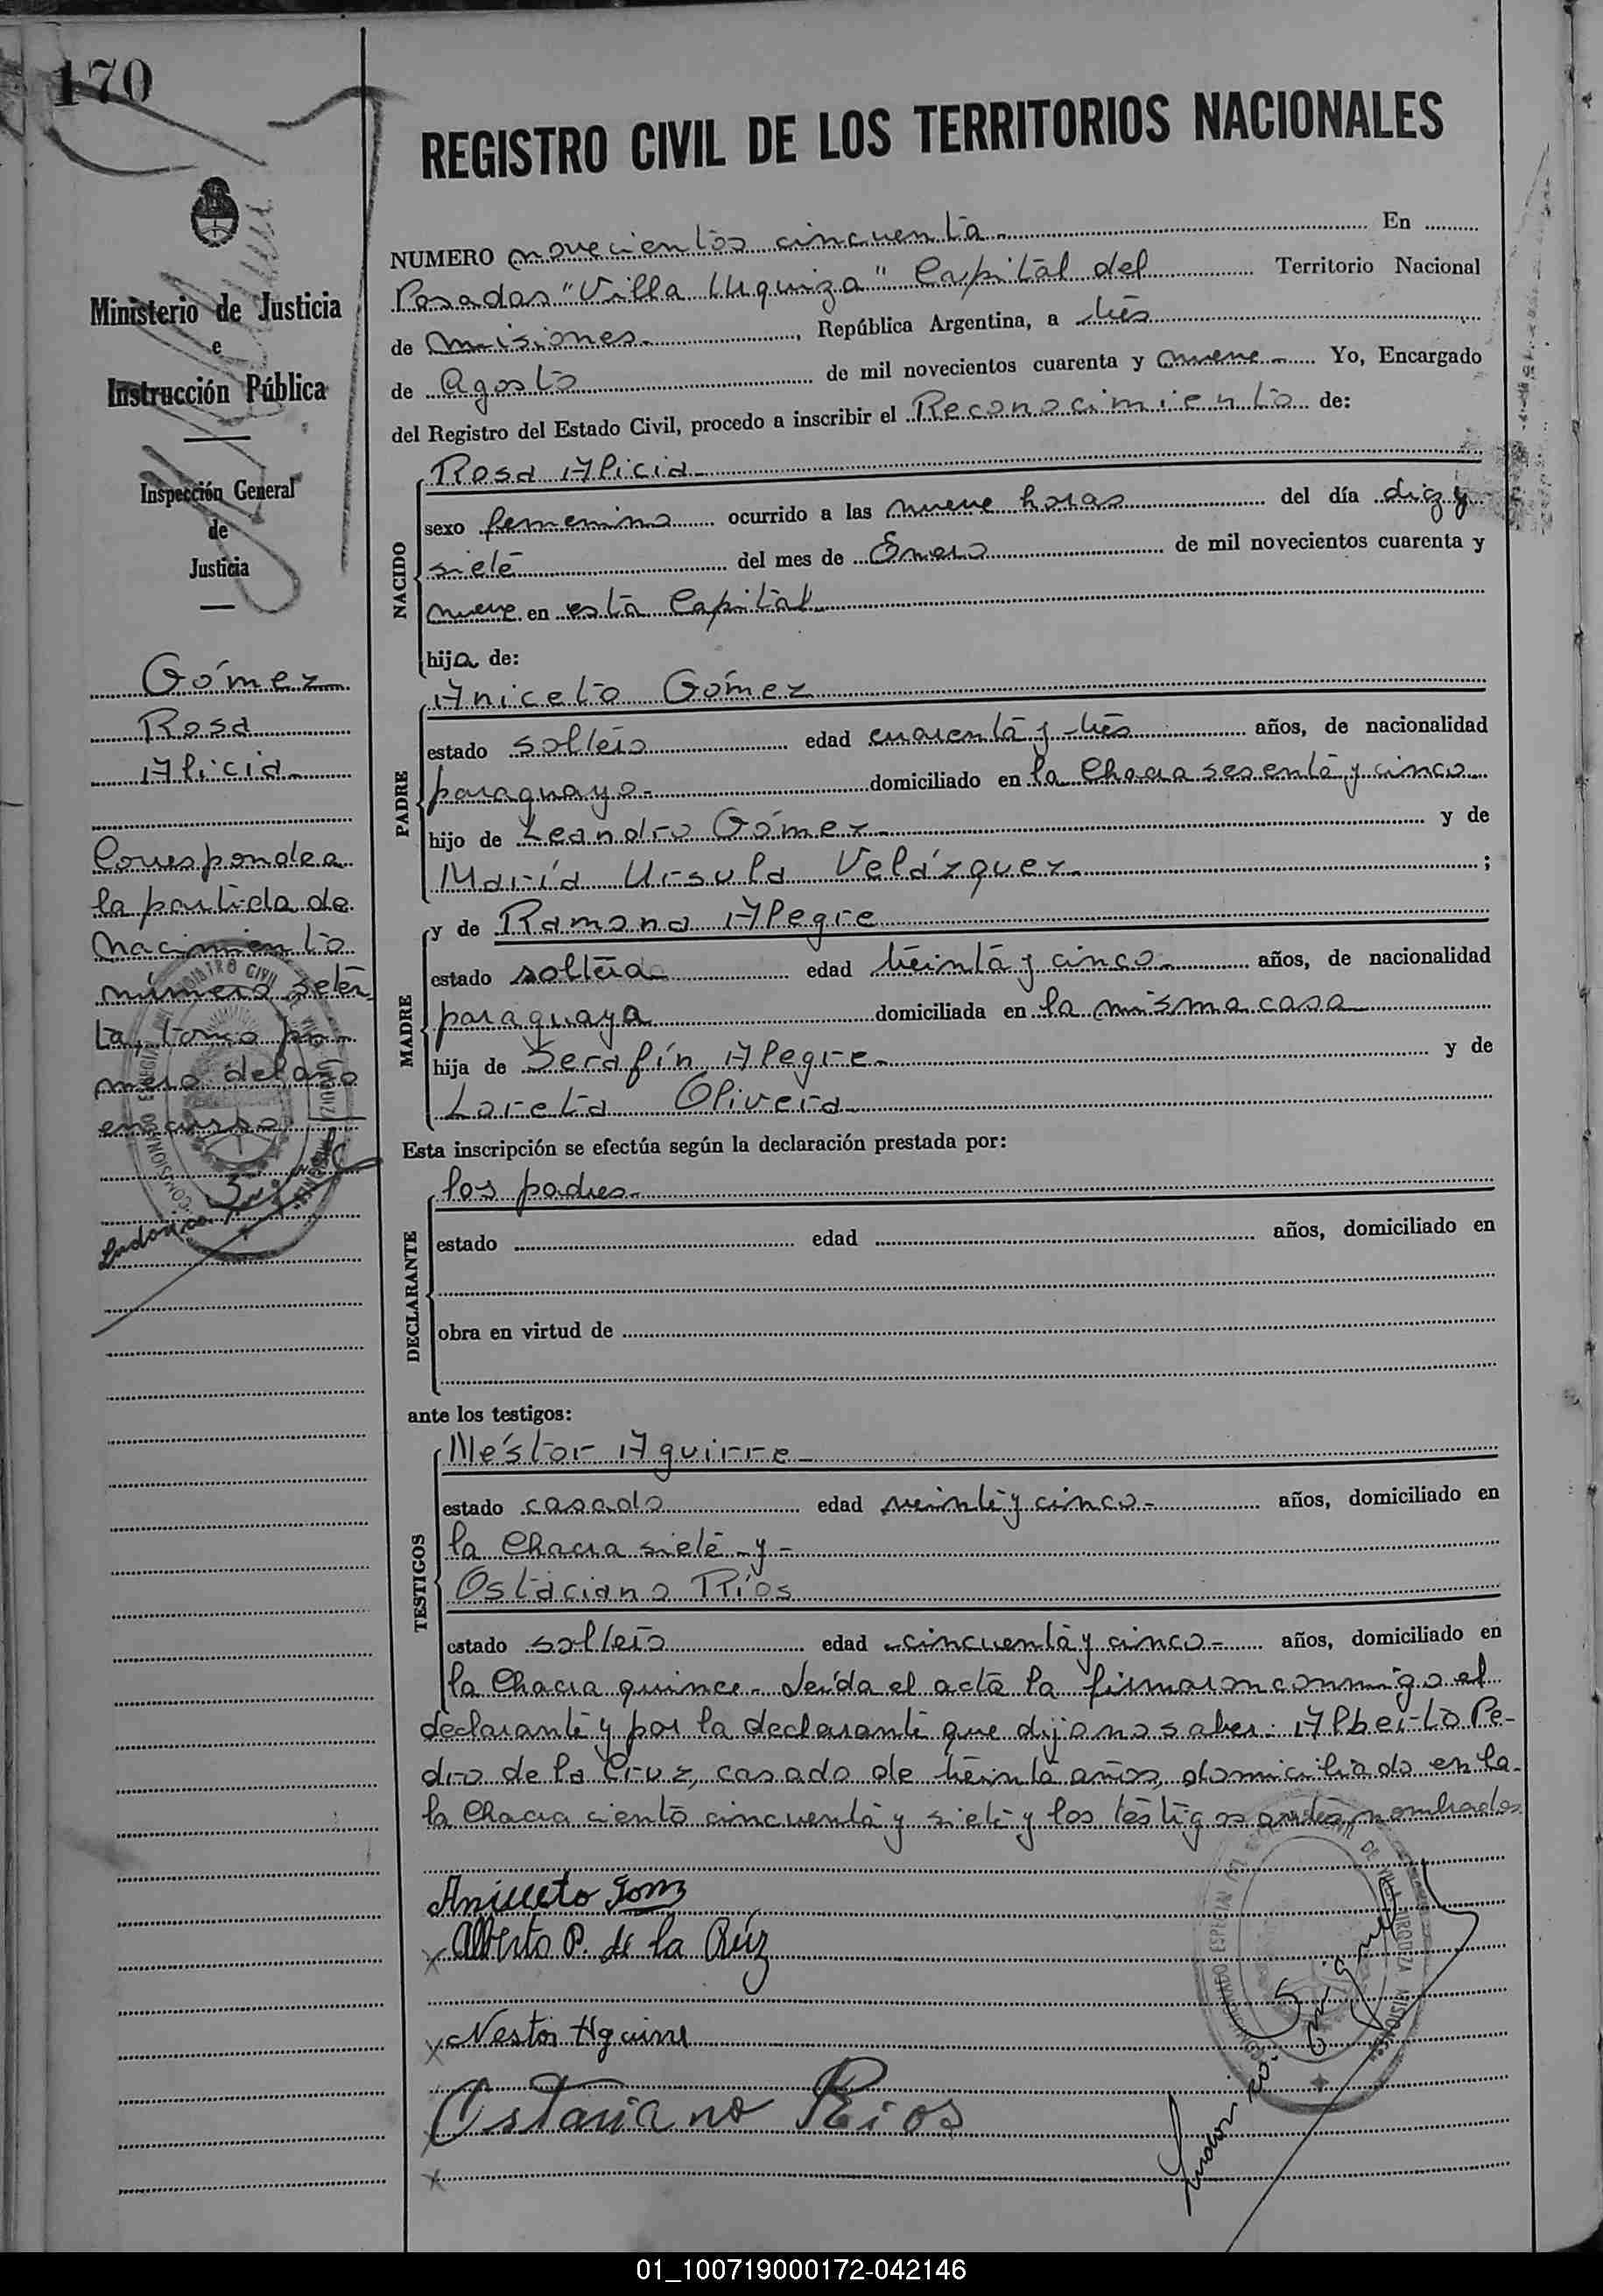 170
REGISTRO CIVIL DE LOS TERRITORIOS NACIONALES
Ministerio de Justicia
e
Instrucción Pública
Inspección General
de
Justicia
Gómez
Rosa
Alicia
Corresponde a
la partida de
nacimiento
número seten
ta, tomo pri-
mero del año
en curso
NUMERO novecientos cincuenta.- En
Posadas "Villa Urquiza" Capital del Territorio Nacional
de Misiones.-, República Argentina, a tres
de Agosto de mil novecientos cuarenta y nueve.- Yo, Encargado
del Registro del Estado Civil, procedo a inscribir el Reconocimiento de:
NACIDO
Rosa Alicia.-
sexo femenino ocurrido a las nueve horas del día diez y
siete del mes de Enero de mil novecientos cuarenta y
nueve en esta Capital
hija de:
PADRE
Aniceto Gómez
estado soltero edad cuarenta y tres años, de nacionalidad
paraguayo.- domiciliado en la Chacra sesenta y cinco
hijo de Leandro Gómez.- y de
María Ursula Velázquez.- ;
MADRE
y de Ramona Alegre
estado soltera edad treinta y cinco.- años, de nacionalidad
paraguaya domiciliada en la misma casa
hija de Serafín Alegre.- y de
Loreta Olivera.-
Esta inscripción se efectúa según la declaración prestada por:
DECLARANTE
los padres.-
estado edad años, domiciliado en
obra en virtud de
ante los testigos:
TESTIGOS
Néstor Aguirre.-
estado casado edad veinte y cinco.- años, domiciliado en
la Chacra siete y-
Ostaciano Ríos
estado soltero edad cincuenta y cinco.- años, domiciliado en
la Chacra quince.- Leída el acta la firmaron conmigo el
declarante y por la declarante que dijo no saber: Alberto Pe-
dro de la Cruz, casado de treinta años, domiciliado en la-
la Chacra ciento cincuenta y siete y los testigos antes nombrados.
Aniceto Gomz
Alberto P. de la Cruz
Nestor Aguirre
Ostaciano Rios
01_100719000172-042146